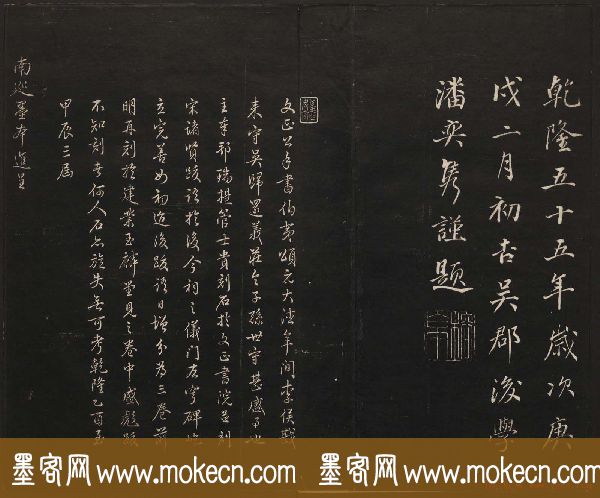 乾隆五十五年歲次庚
戌二月初吉吳郡後學
潘奕雋謹題
文正公手書伯夷頌元大德年間李侯戡
来守吳歸還義莊令子孫世守甚盛事也
主奉邦瑞提管士貴刻石於文正書院并刻
宋諸賢跋語於後今祠之儀門左穹碑屹
立完善如初迨後跋語日增分為三卷前
明再刻於建業玉麟堂見之卷中戚彪跋
不知刻者何人石亦旋失無可考乾隆乙酉至
甲辰三屆
南巡墨本進呈
墨客网 www.mokecn.com 墨客网 www.mokecn.com